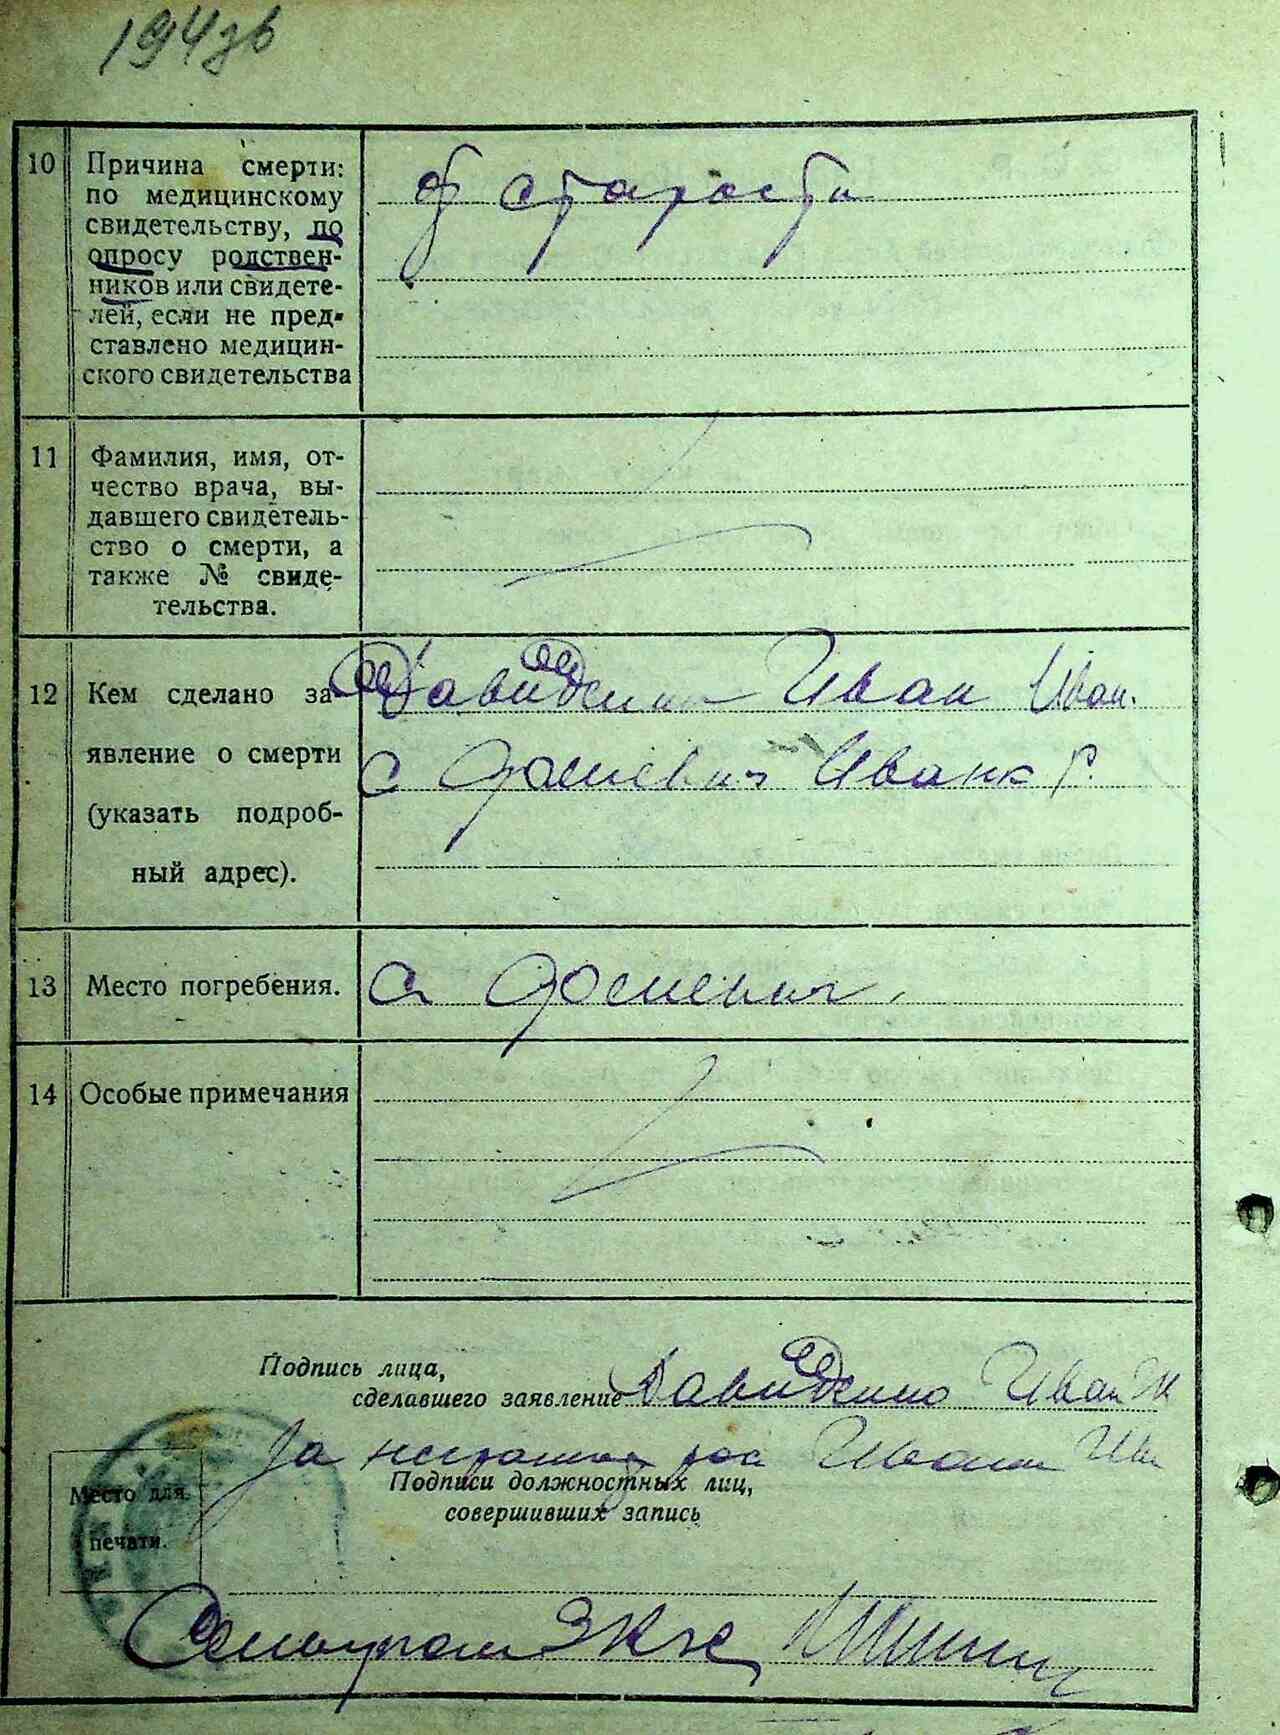 194зв
10 Причина смерти:
по медицинскому
свидетельству, по
опросу родствен-
ников или свидете-
лей, если не пред-
ставлено медицин-
ского свидетельства
от старости
11 Фамилия, имя, от-
чество врача, вы-
давшего свидетель-
ство о смерти, а
также № свиде-
тельства.
12 Кем сделано за-
явление о смерти
(указать подроб-
ный адрес).
Давиденко Иван Иван.
с Иванк р.
13 Место погребения.
с
14 Особые примечания
Подпись лица,
сделавшего заявление Давиденко Иван
За неграмотн Иван
Подписи должностных лиц,
совершивших запись
Место для
печати.